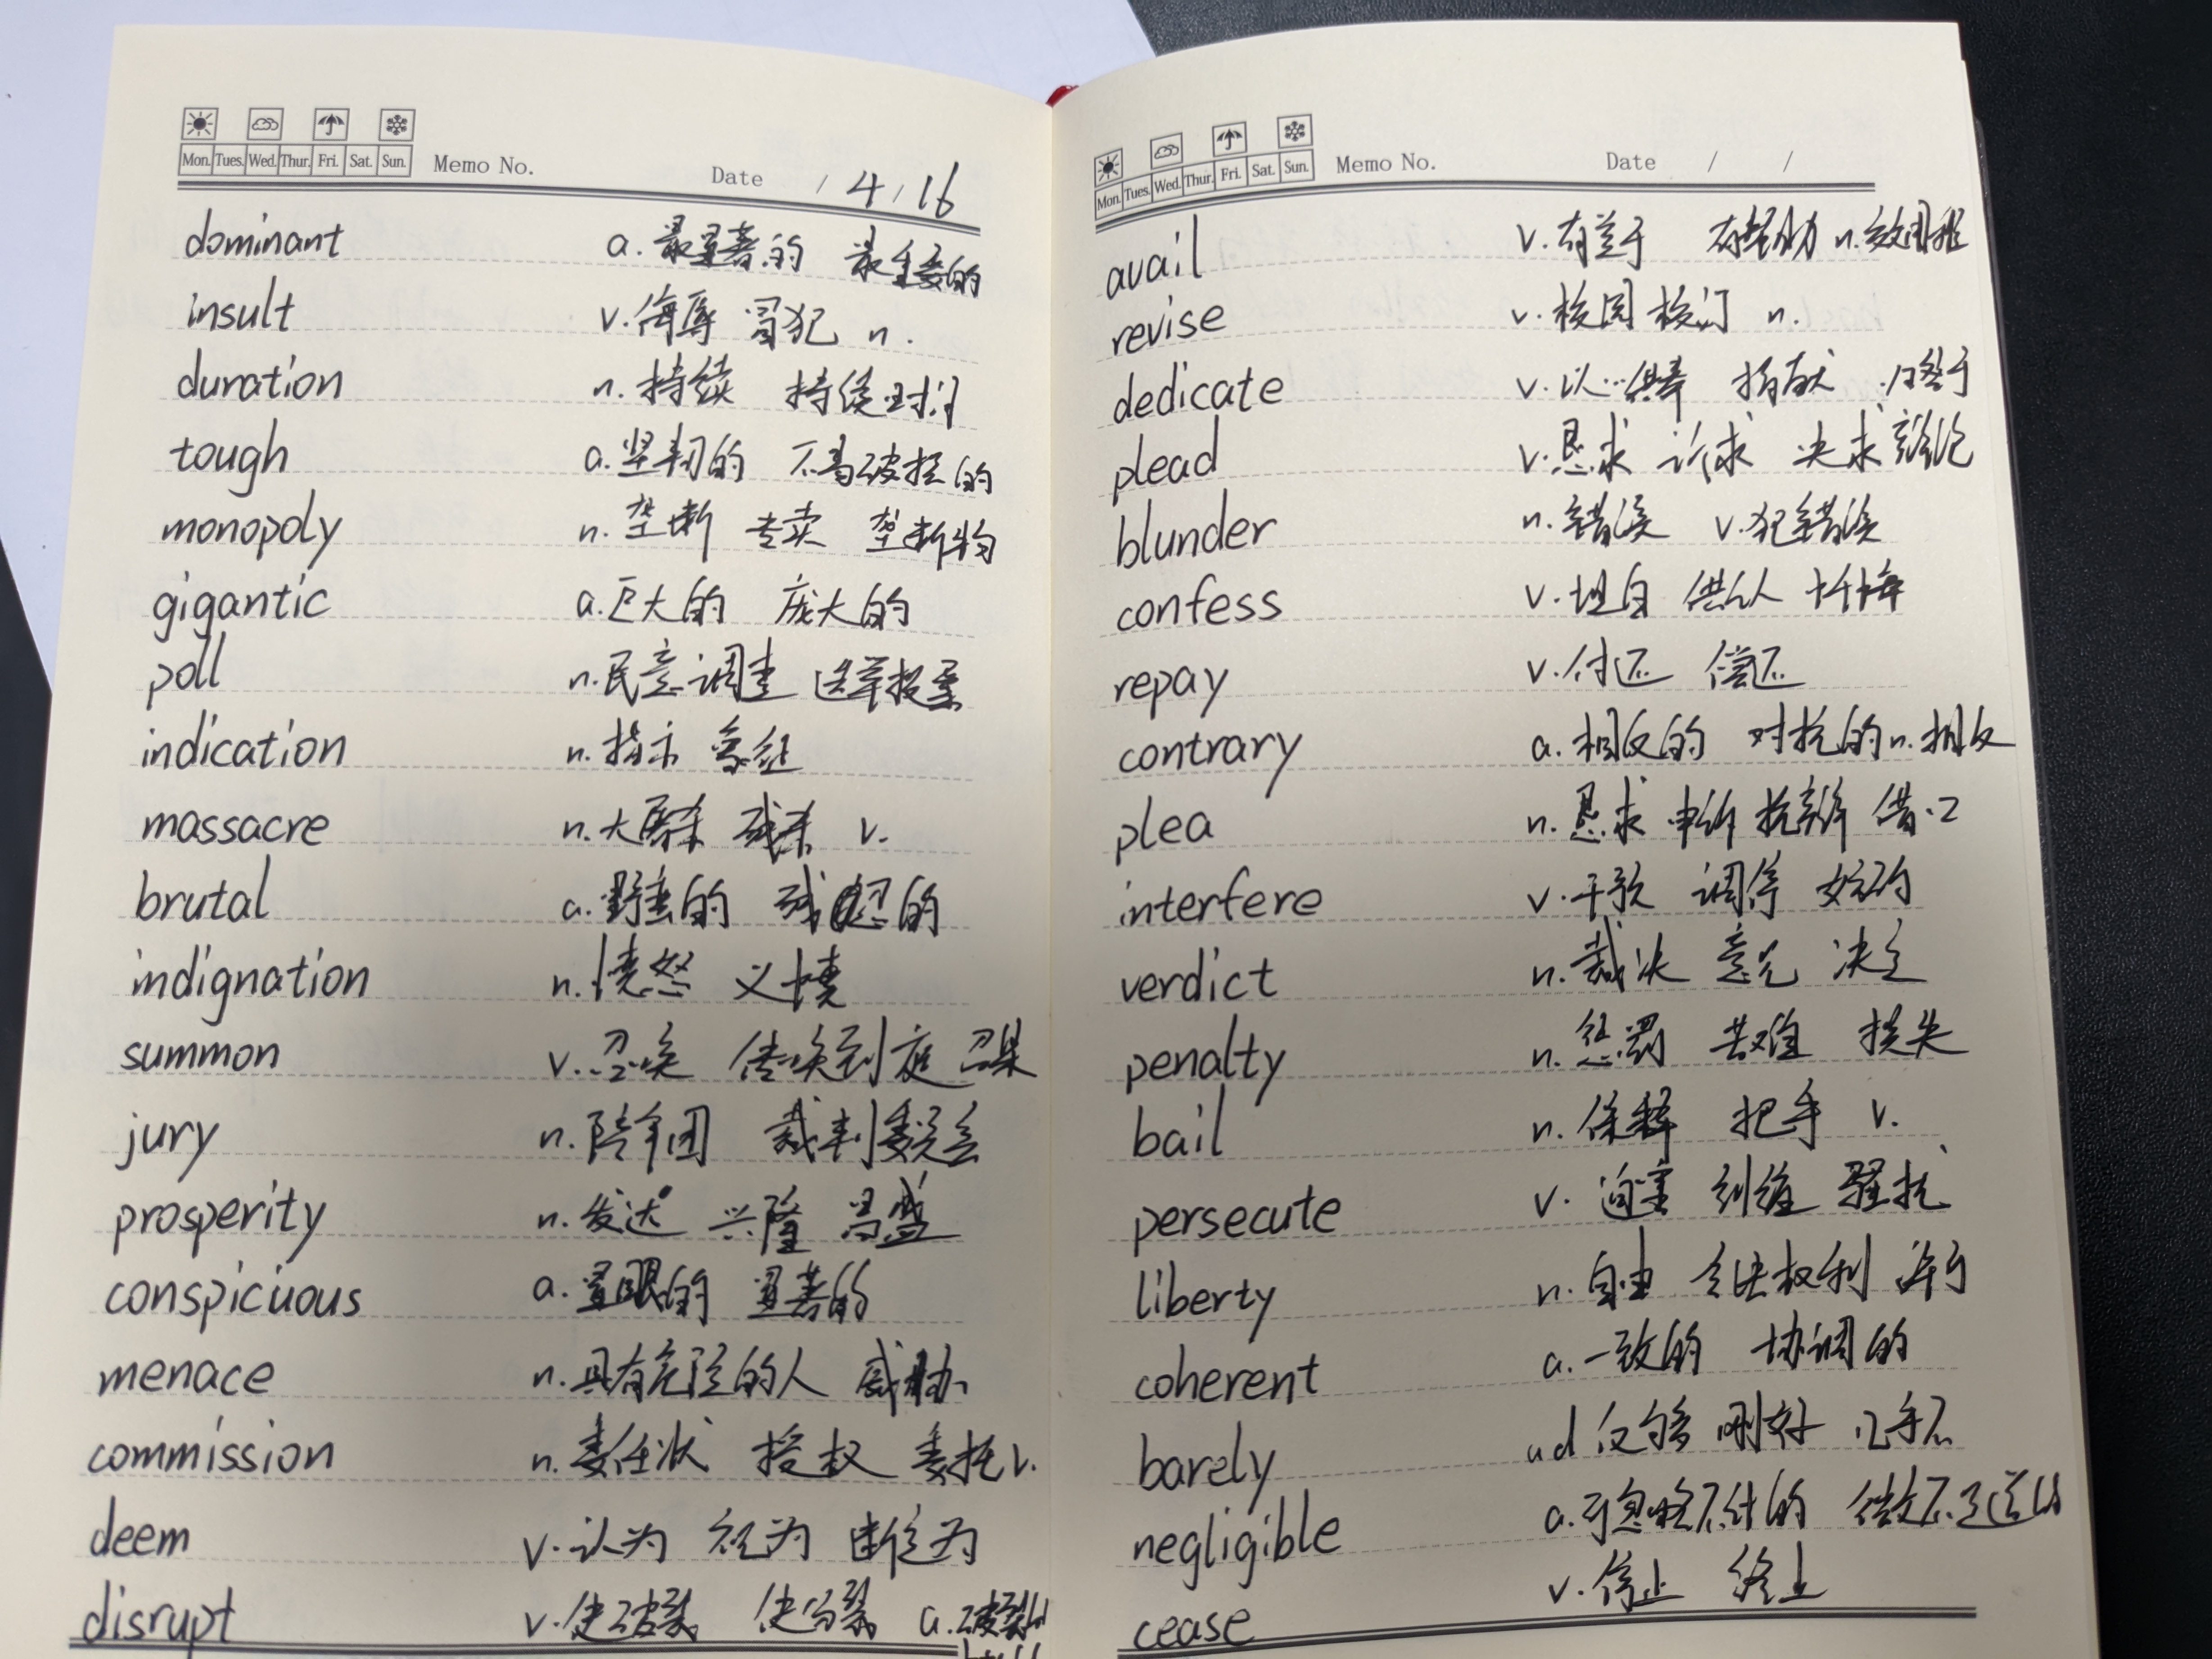 Mon. Tues. Wed. Thur. Fri. Sat. Sun. Memo No. Date / 4 / 16
dominant a. 最显著的 最重要的
insult v. 侮辱 冒犯 n.
duration n. 持续 持续时间
tough a. 坚韧的 不易破损的
monopoly n. 垄断 专卖 垄断物
gigantic a. 巨大的 庞大的
poll n. 民意调查 选举投票
indication n. 指示 象征
massacre n. 大屠杀 残杀 v.
brutal a. 野蛮的 残忍的
indignation n. 愤怒 义愤
summon v. 召唤 传唤到庭 召集
jury n. 陪审团 裁判委员会
prosperity n. 发达 兴隆 昌盛
conspicuous a. 显眼的 显著的
menace n. 具有危险的人 威胁
commission n. 委任状 授权 委托 v.
deem v. 认为 视为 断定为
disrupt v. 使破裂 使分裂 a. 破裂的
Mon. Tues. Wed. Thur. Fri. Sat. Sun. Memo No. Date / /
avail v. 有益于 有帮助 n. 效用
revise v. 校阅 校订 n.
dedicate v. 以…供奉 捐献
plead v. 恳求 诉求 决求 辩论
blunder n. 错误 v. 犯错误
confess v. 坦白 供认 忏悔
repay v. 付还 偿还
contrary a. 相反的 对抗的 n. 相反
plea n. 恳求 申诉 抗辩 借口
interfere v. 干预 调停 妨碍
verdict n. 裁决 意见 决定
penalty n. 惩罚 苦难 损失
bail n. 保释 把手 v.
persecute v. 迫害 纠缠 骚扰
liberty n. 自由 合法权利 许可
coherent a. 一致的 协调的
barely ad 仅够 刚好 几乎不
negligible a. 可忽略不计的 微不足道的
cease v. 停止 终止